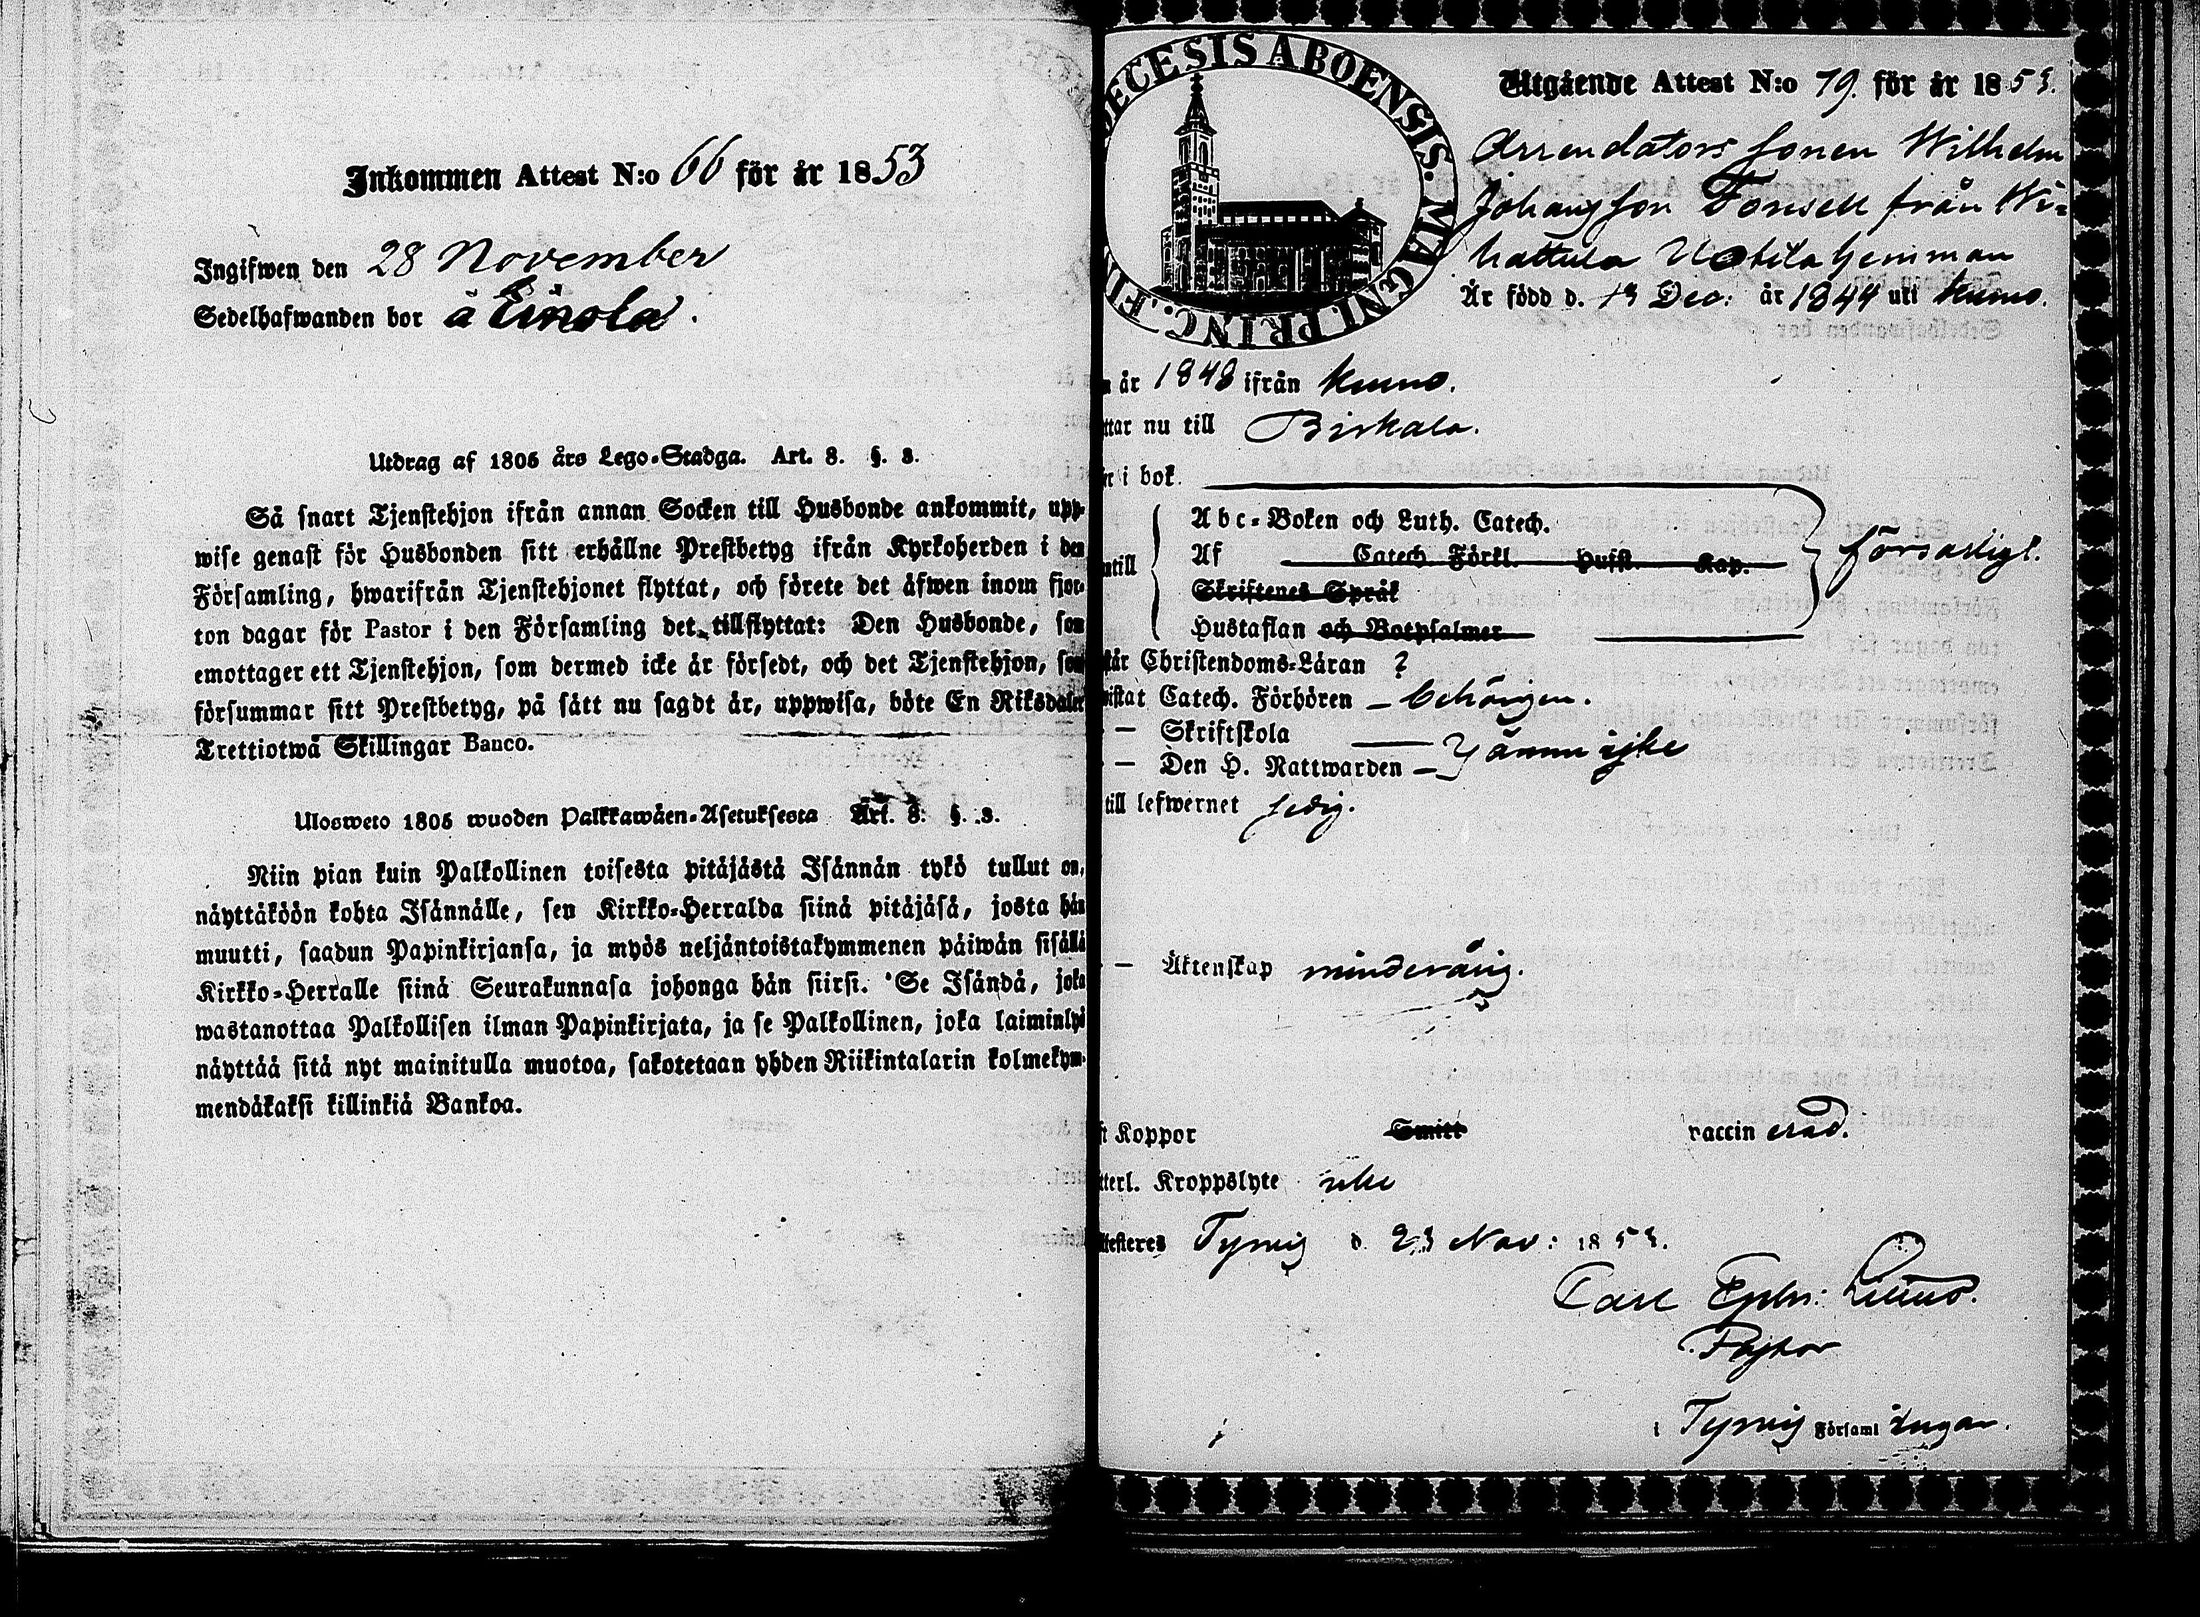 Inkommen Attest N:o 66 för år 1853
Ingifwen den 28 November
Sedelhafwanden bor å Einola.
Utdrag af 1805 års Lego-Stadga. Art. 8. §. 3.
Så snart Tjenstehjon ifrån annan Socken till Husbonde ankommit, upp-
wise genast för Husbonden sitt erhållne Prestbetyg ifrån Kyrkoherden i den
Församling, hwarifrån Tjenstehjonet flyttat, och förete det äfwen inom fjor-
ton dagar för Pastor i den Församling det tillflyttat: Den Husbonde, som
emottager ett Tjenstehjon, som dermed icke är försedt, och det Tjenstehjon, som
försummar sitt Prestbetyg, på sätt nu sagdt är, uppwisa, böte En Riksdaler
Trettiotwå Skillingar Banco.
Ulosweto 1805 wuoden Palkkawäen-Asetuksesta Art. 8. §. 3.
Niin pian kuin Palkollinen toisesta pitäjästä Isännän tykö tullut on,
näyttäköön kohta Isännälle, sen Kirkko-Herralda siinä pitäjäsä, josta hän
muutti, saadun Papinkirjansa, ja myös neljäntoistakymmenen päiwän sisällä
Kirkko-Herralle siinä Seurakunnasa johonga hän siirsi. Se Isändä, joka
wastanottaa Palkollisen ilman Papinkirjata, ja se Palkollinen, joka laiminlyö
näyttää sitä nyt mainitulla muotoa, sakotetaan yhden Riikintalarin kolmekym-
mendäkaksi killinkiä Bankoa.
DIOECESIS ABOENSIS. MAGNI. PRINC. FIN
Utgående Attest N:o 79. för år 1853.
Arrendators sonen Wilhelm
Johansson Tonsell från Wi-
hattula Uotila hemman
Är född d. 13 Dec: år 1844 uti Kumo.
år 1848 ifrån Kumo.
ttar nu till Birkala.
i bok.
Abc-Boken och Luth. Catech.
Af Catech. Förkl. Husst. Kap.
försvarligt.
ntill
Skriftenes Språk
Hustaflan och Botpsalmer
tår Christendoms-Läran ?
istat Catech. Förhören – behörigen.
— Skriftskola
— Den H. Nattwarden – ännu icke
till lefwernet sedig.
— Äktenskap minderårig.
t Koppor Smitt vaccin erad.
tterl. Kroppslyte icke
ttesteres Tyrvis d. 23 Nov: 1853.
Carl Ephr: Lilius.
Pastor
i Tyrvis Församl ingar.